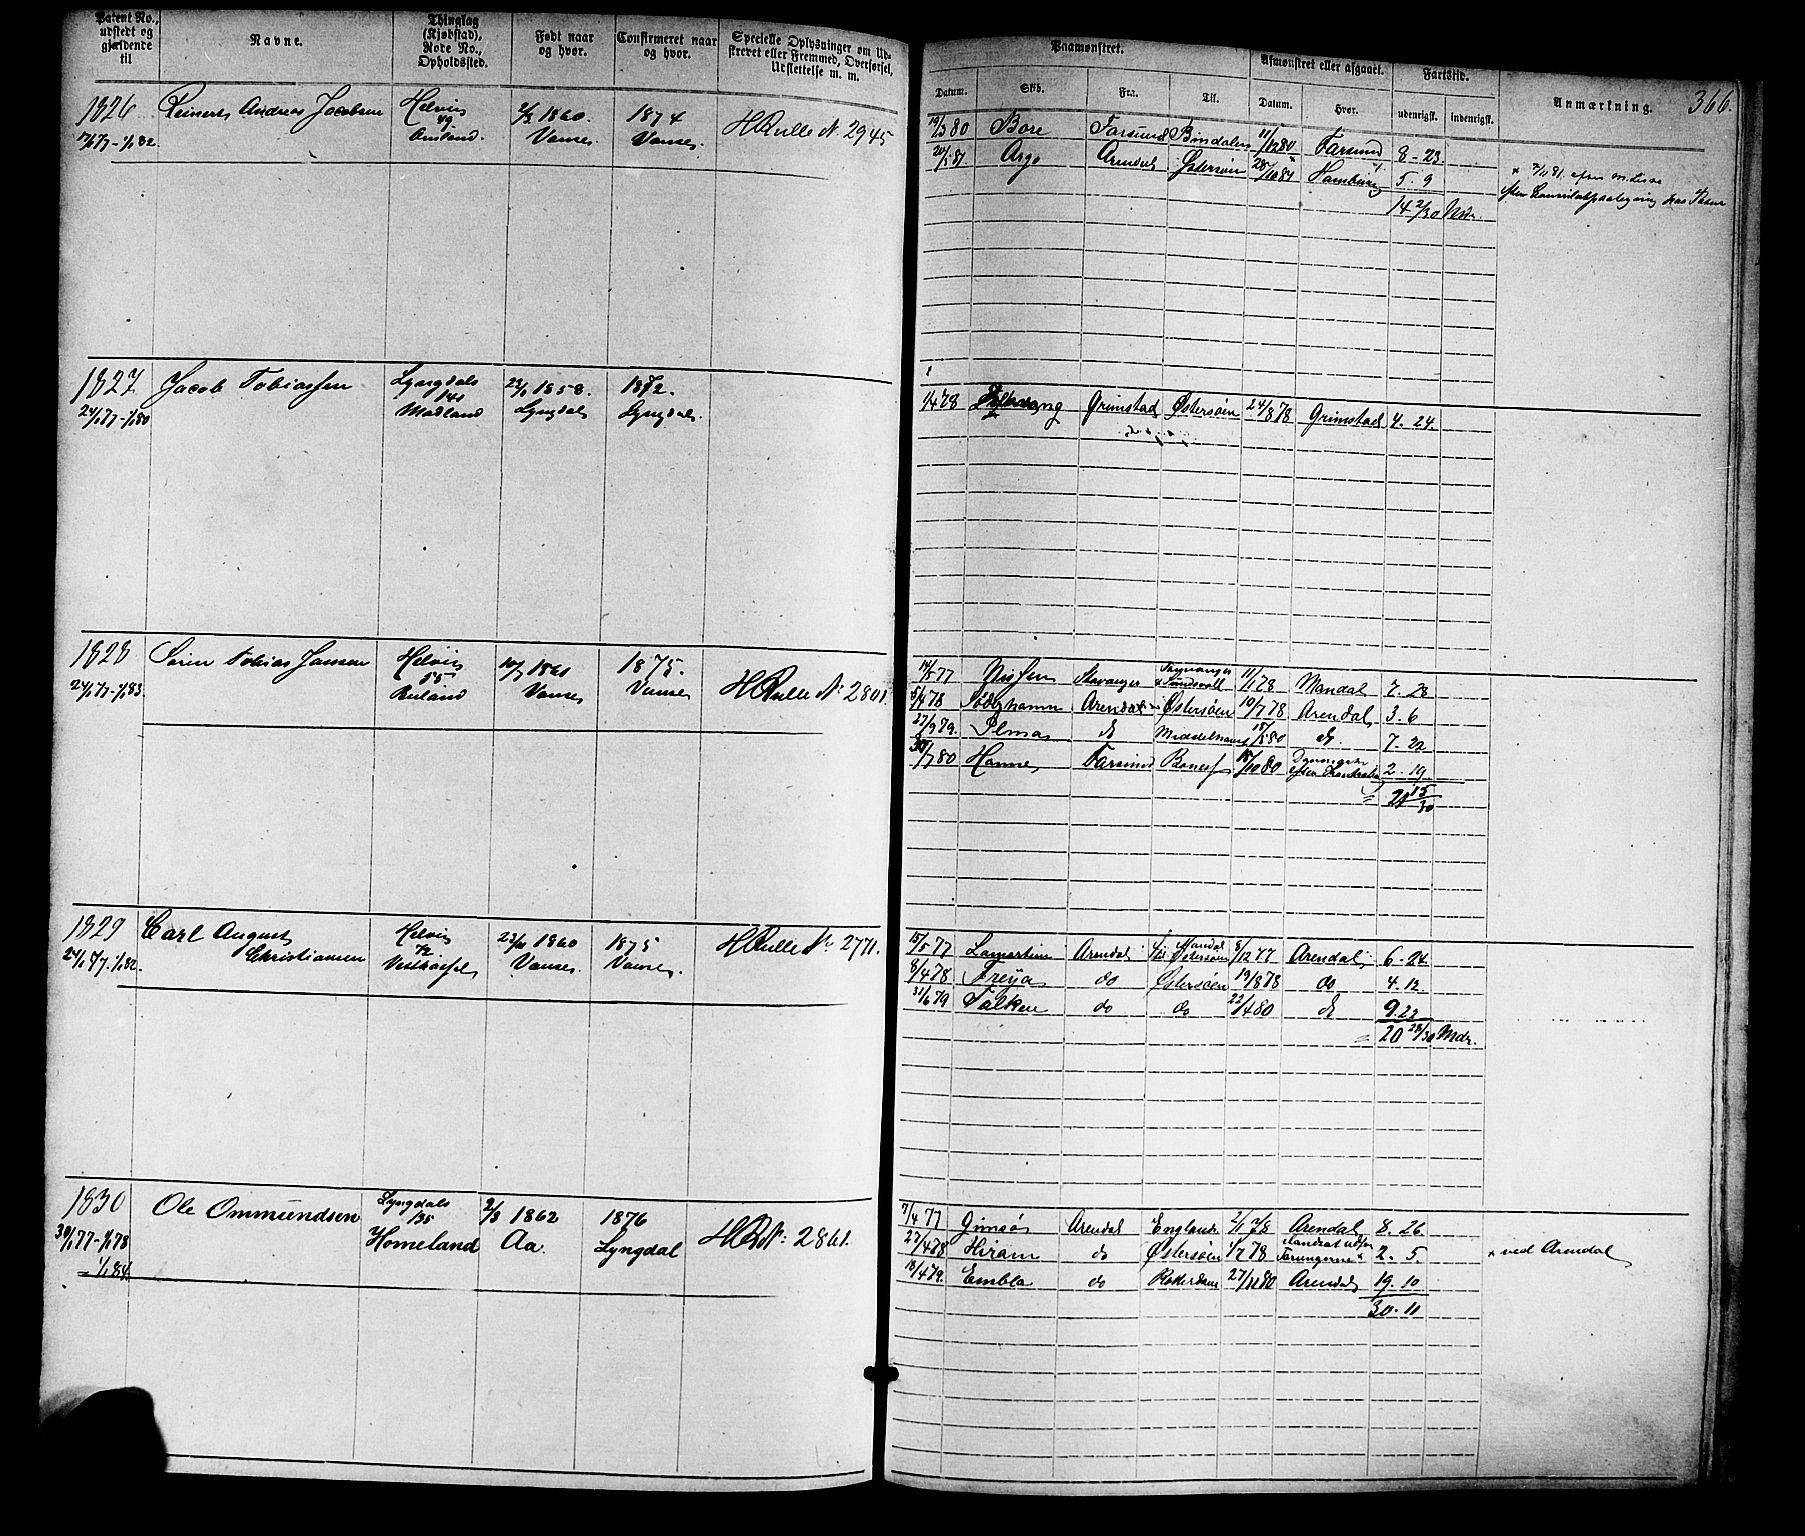 Patent No., udstedt og gjældende til
Navne.
Thinglag (Kjøbstad), Rode No., Opholdssted.
Født naar og hvor.
Confirmeret naar og hvor.
Specielle Oplysninger om Udskrevet eller Fremmed, Overførsel, Udslettelse m. m.
Paamønstret.
Afmønstret eller afgaaet.
Fartstid.
Anmærkning.
366.
Datum.
Skib.
Fra.
Til.
Datum.
Hvor.
udenrigsk.
indenrigsk.
1826
Reinert Andreas Jacobsen
Helvig
49
2/2 1860.
Vanse.
1874
Vanse.
HRulle N. 2945
19/3 80 Bore Farsund Bindalen 11/12 80 Farsund 8-23
20/5 81. Argo Arendal Østersøen 28/10 81 Hamburg 5.9
14 2/30 Mdr.
1827
24/1 77-1/1 80
Jacob Tobiassen
Lyngdals
141
Madland
23/1 1858.
Lyngdal
1872.
Lyngdal.
1/4 78 Grimstad Østersøen 24/8 78 Grimstad 4. 24.
1828
24/1 77-1/1 83.
Søren Tobias Jansen
Helvig
55
10/7 1861
Vanse
1875.
Vanse
HRulle N: 2801.
14/5 77 Nissen Stavanger & Sundsvall 11/1 78 Mandal 7. 28
5/4 78 Söderhamn Arendal Østersøen 10/7 78 Arendal 3.6
27/9 79. Elma do Middelhavet 15/5 80 do. 7. 22
30/7 80 Hanne Farsund 18/10 80 2. 19
21 15/30
1829
24/1 77-1/1 82.
Carl August Christiansen
Helvig
72
Vesthassel
23/11 1860
Vanse.
1875
Vanse.
HRulle N. 2771.
15/5 77 Lamartine Arendal Mandal Østersøen 8/12 77 Arendal 6-24
8/4 78 Freya do Østersøen 19/8 78 do 4.12
31/6 79 Falken do do 22/4 80 do 9.22
= 20 28/30 Mdr.
1830
30/1 77-1/1 78
- 1/1 84.
Ole Ommundsen
Lyngdals
135
Homeland
2/3 1862
Aa.
1876
Lyngdal
HR N: 2861.
7/4 77 Gimsø Arendal England 2/1 78 Arendal 8. 26
27/4 78 Hiram do Østersøen 1/7 78 2. 5. x ved Arendal
18/4 79. Embla do Rotterdam 27/11 80 Arendal 19. 10
30. 11